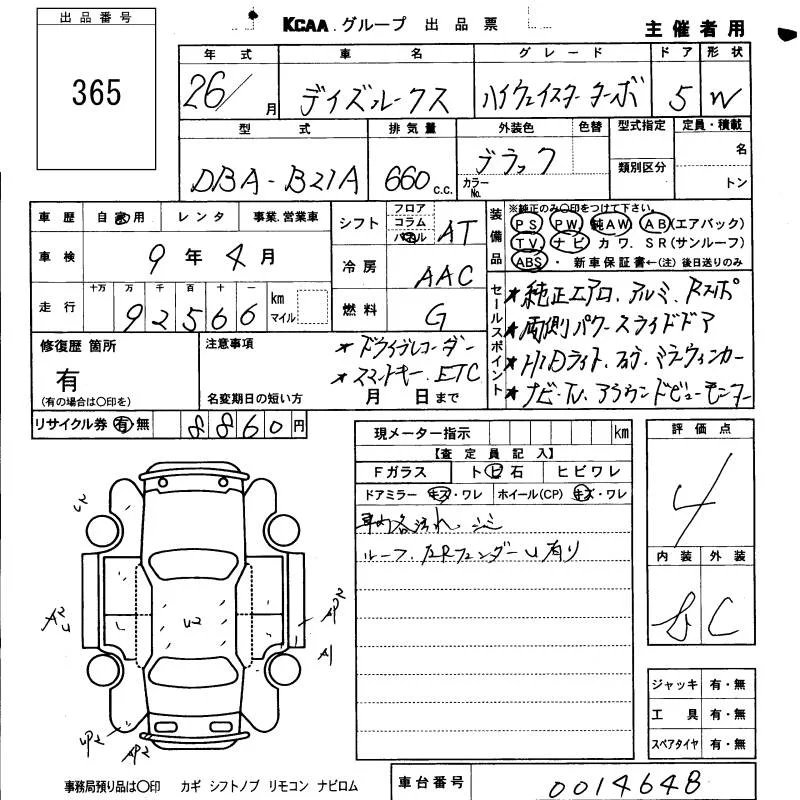 出品番号
365
KCAA グループ 出品票
主催者用
年式 車名 グレード ドア 形状
26/ 月 デイズルークス ハイウェイスターターボ 5 W
型式 排気量 外装色 色替 型式指定 定員・積載
DBA-B21A 660 c.c. ブラック カラーNo. 類別区分 名 トン
車歴 自家用 レンタ 事業.営業車
車検 9年4月
走行 十万 万 千 百 十 一
92566 km マイル
シフト フロア コラム パネル AT
冷房 AAC
燃料 G
装備品
※純正のみ〇印をつけて下さい。
PS PW 純AW AB(エアバック)
TV ナビ カワ. SR(サンルーフ)
ABS ・ 新車保証書←(注)後日送りのみ
セールスポイント
★純正エアロ.アルミ.Rスポ
★両側パワースライドドア
★HIDライト.フォグ.ミラーウィンカー
★ナビ・TV.アラウンドビューモニター
修復歴 箇所
有
(有の場合は〇印を)
注意事項
★ドライブレコーダー
★スマートキー.ETC
名変期日の短い方 月 日まで
リサイクル券 有 無 8860円
現メーター指示 km
【査定員記入】
Fガラス トビ石 ヒビワレ
ドアミラー キズ・ワレ ホイール(CP) キズ・ワレ
車内各汚れ.シミ
ルーフ.左Rフェンダー U有り
評価点
4
内装 外装
C
U2
A2
U2
AP2
A1
UP2
AP2
ジャッキ 有・無
工具 有・無
スペアタイヤ 有・無
事務局預り品は〇印 カギ シフトノブ リモコン ナビロム
車台番号 0014648